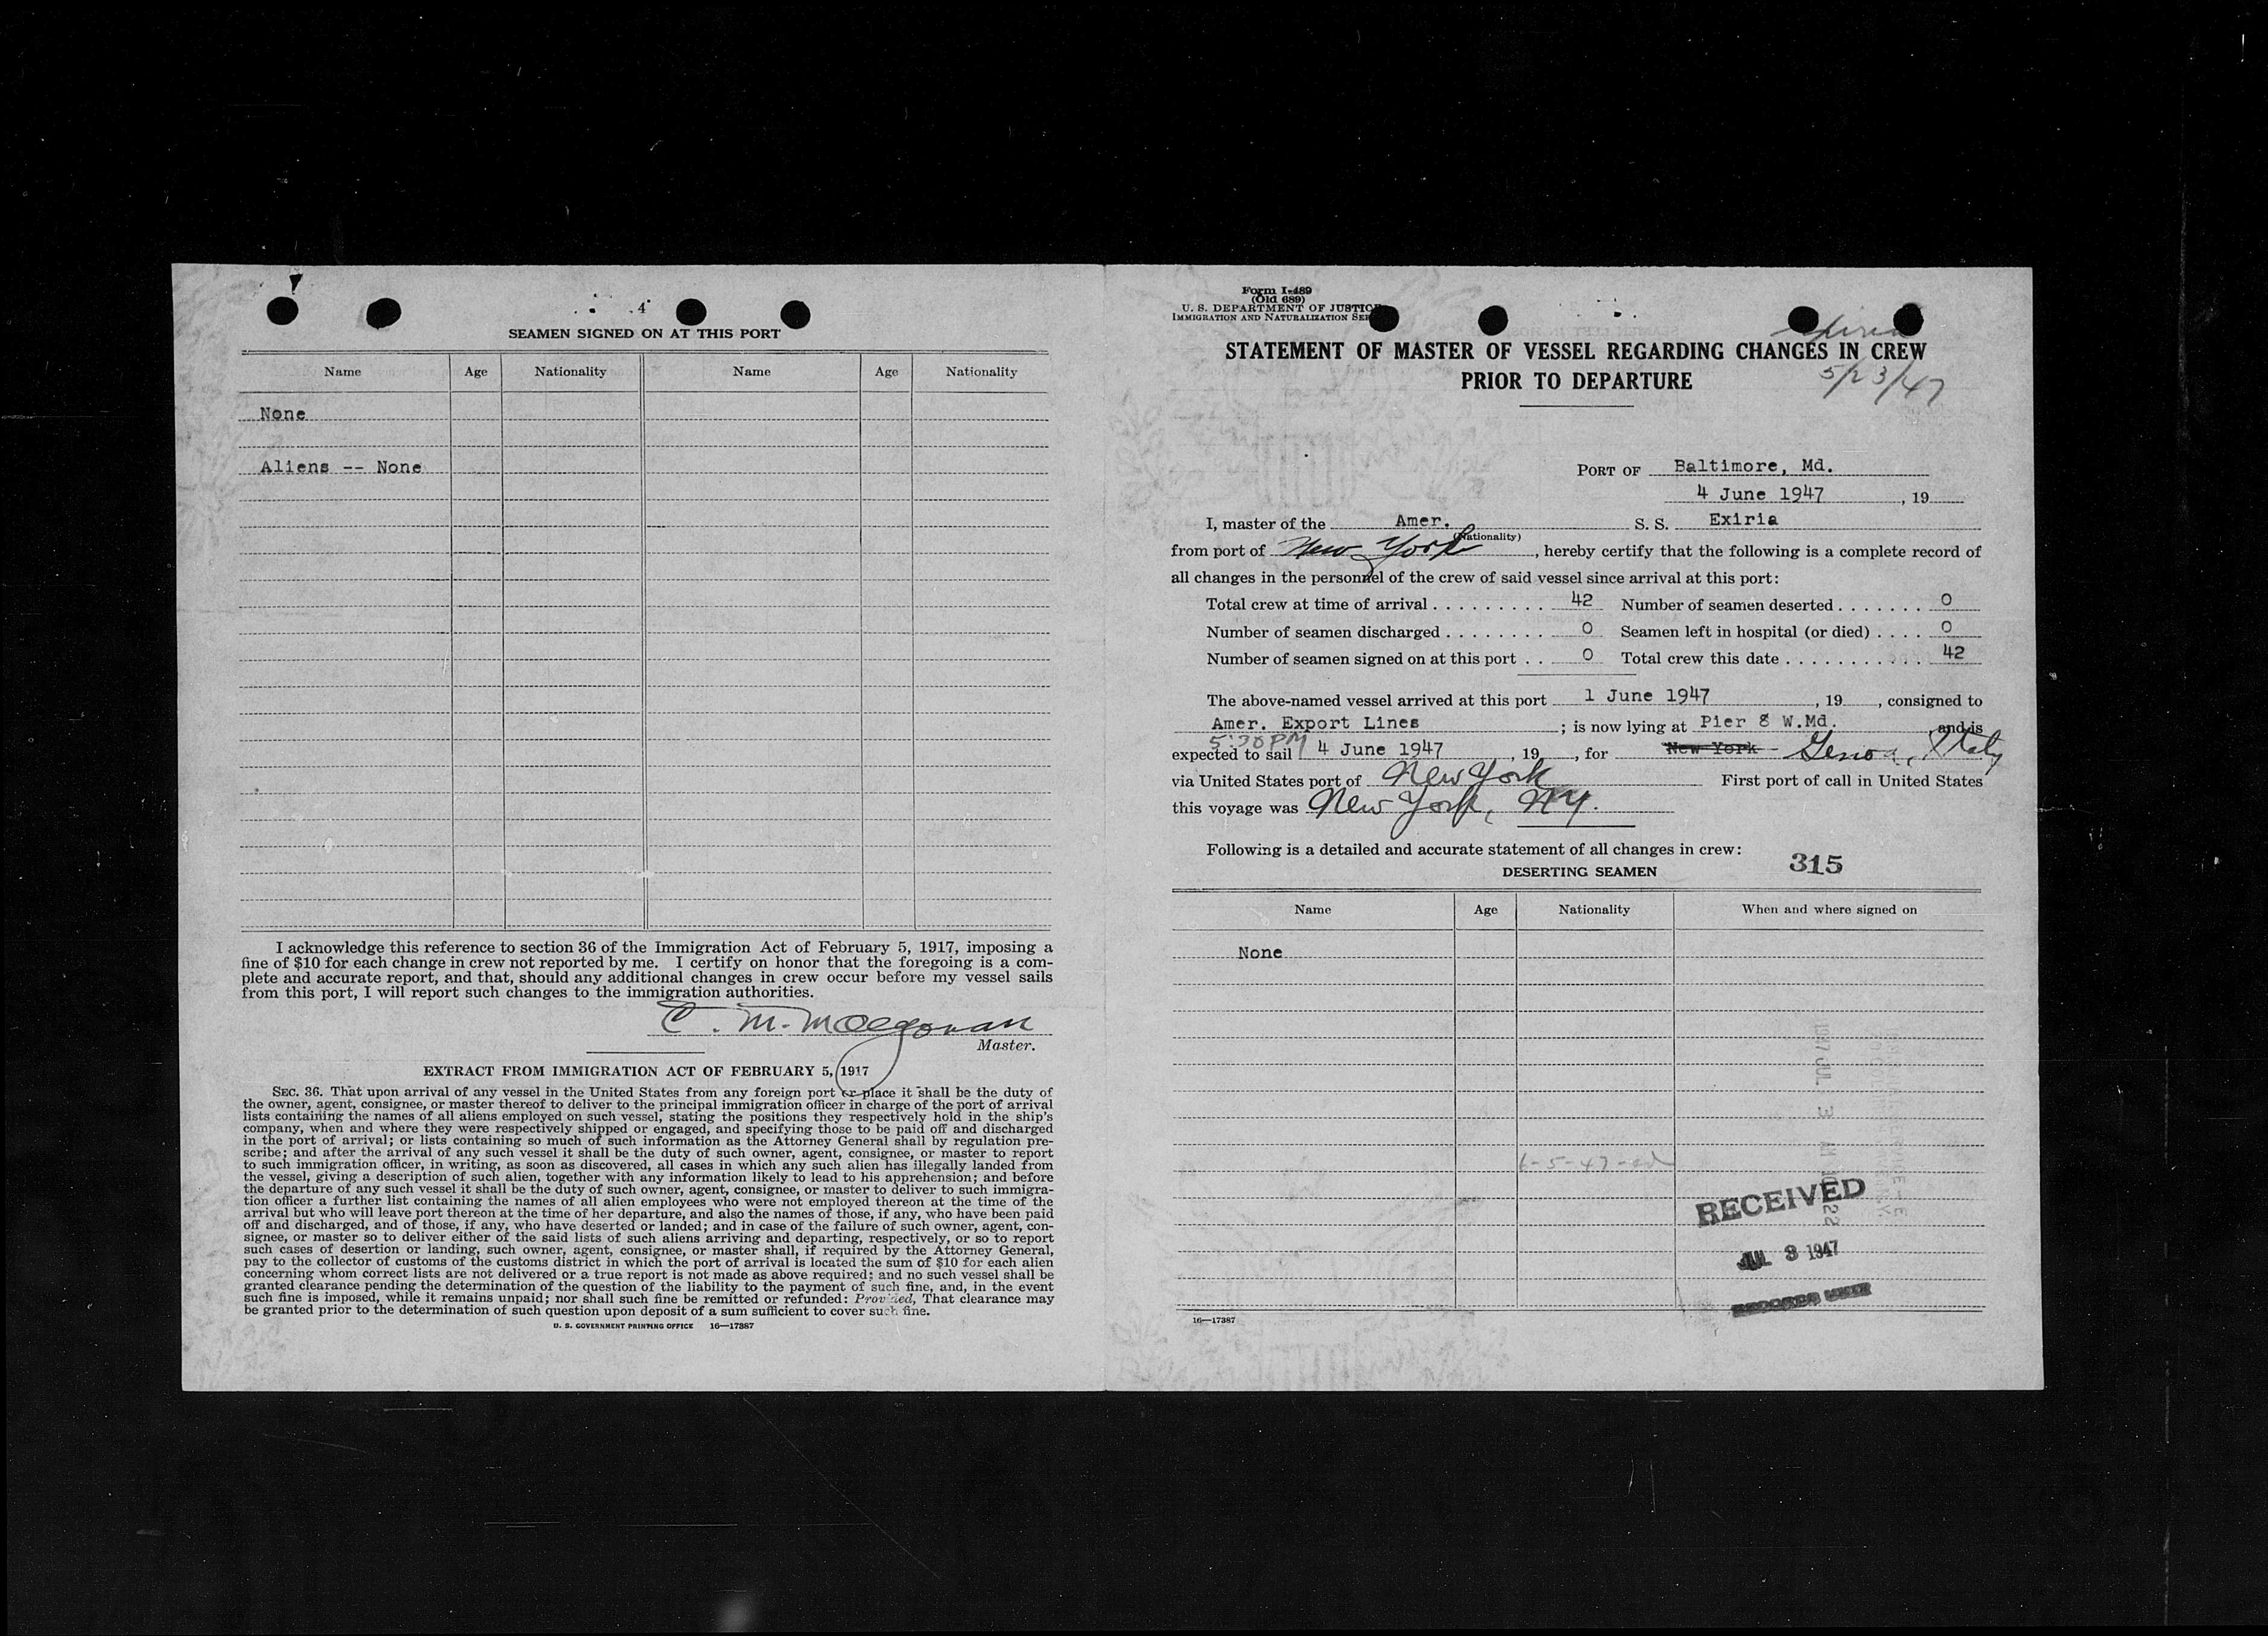 4
SEAMEN SIGNED ON AT THIS PORT
Name Age Nationality Name Age Nationality
None
Aliens -- None
I acknowledge this reference to section 36 of the Immigration Act of February 5, 1917, imposing a
fine of $10 for each change in crew not reported by me. I certify on honor that the foregoing is a com-
plete and accurate report, and that, should any additional changes in crew occur before my vessel sails
from this port, I will report such changes to the immigration authorities.
C. M.
Master.
EXTRACT FROM IMMIGRATION ACT OF FEBRUARY 5, 1917
SEC. 36. That upon arrival of any vessel in the United States from any foreign port or place it shall be the duty of
the owner, agent, consignee, or master thereof to deliver to the principal immigration officer in charge of the port of arrival
lists containing the names of all aliens employed on such vessel, stating the positions they respectively hold in the ship's
company, when and where they were respectively shipped or engaged, and specifying those to be paid off and discharged
in the port of arrival; or lists containing so much of such information as the Attorney General shall by regulation pre-
scribe; and after the arrival of any such vessel it shall be the duty of such owner, agent, consignee, or master to report
to such immigration officer, in writing, as soon as discovered, all cases in which any such alien has illegally landed from
the vessel, giving a description of such alien, together with any information likely to lead to his apprehension; and before
the departure of any such vessel it shall be the duty of such owner, agent, consignee, or master to deliver to such immigra-
tion officer a further list containing the names of all alien employees who were not employed thereon at the time of the
arrival but who will leave port thereon at the time of her departure, and also the names of those, if any, who have been paid
off and discharged, and of those, if any, who have deserted or landed; and in case of the failure of such owner, agent, con-
signee, or master so to deliver either of the said lists of such aliens arriving and departing, respectively, or so to report
such cases of desertion or landing, such owner, agent, consignee, or master shall, if required by the Attorney General,
pay to the collector of customs of the customs district in which the port of arrival is located the sum of $10 for each alien
concerning whom correct lists are not delivered or a true report is not made as above required; and no such vessel shall be
granted clearance pending the determination of the question of the liability to the payment of such fine, and, in the event
such fine is imposed, while it remains unpaid; nor shall such fine be remitted or refunded: Provided, That clearance may
be granted prior to the determination of such question upon deposit of a sum sufficient to cover such fine.
U. S. GOVERNMENT PRINTING OFFICE 16—17387
Form I-489
(Old 689)
U. S. DEPARTMENT OF JUSTICE
IMMIGRATION AND NATURALIZATION SER
STATEMENT OF MASTER OF VESSEL REGARDING CHANGES IN CREW
PRIOR TO DEPARTURE
5/23/47
PORT OF Baltimore, Md.
4 June 1947, 19
I, master of the Amer. S. S. Exiria
(Nationality)
from port of New York, hereby certify that the following is a complete record of
all changes in the personnel of the crew of said vessel since arrival at this port:
Total crew at time of arrival 42 Number of seamen deserted 0
Number of seamen discharged 0 Seamen left in hospital (or died) 0
Number of seamen signed on at this port 0 Total crew this date 42
The above-named vessel arrived at this port 1 June 1947, 19, consigned to
Amer. Export Lines; is now lying at Pier 8 W.Md. and is
5:30PM
expected to sail 4 June 1947, 19, for New York Genoa, Italy
via United States port of New York First port of call in United States
this voyage was New York, NY.
Following is a detailed and accurate statement of all changes in crew:
315
DESERTING SEAMEN
Name Age Nationality When and where signed on
None
6-5-47
RECEIVED
JUL 3 1947
RECORDS UNIT
16—17387